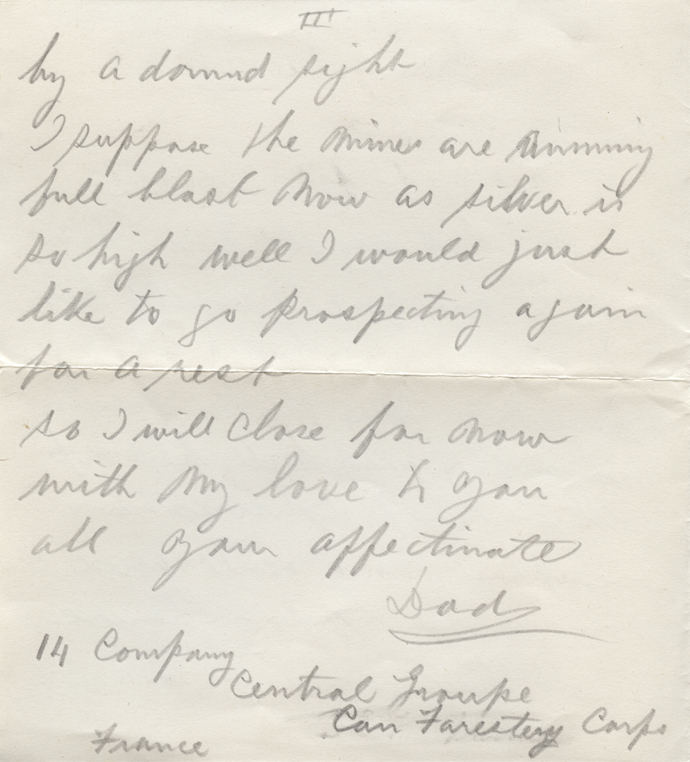 III
by a domnd sight
I suppose the mines are running
full blast now as silver is
so high well I would just
like to go prospecting again
for a rest
so I will close for now
with my love to you
all your affectinate
Dad
14 Company
Central Groupe
Can Farestery Corps
France